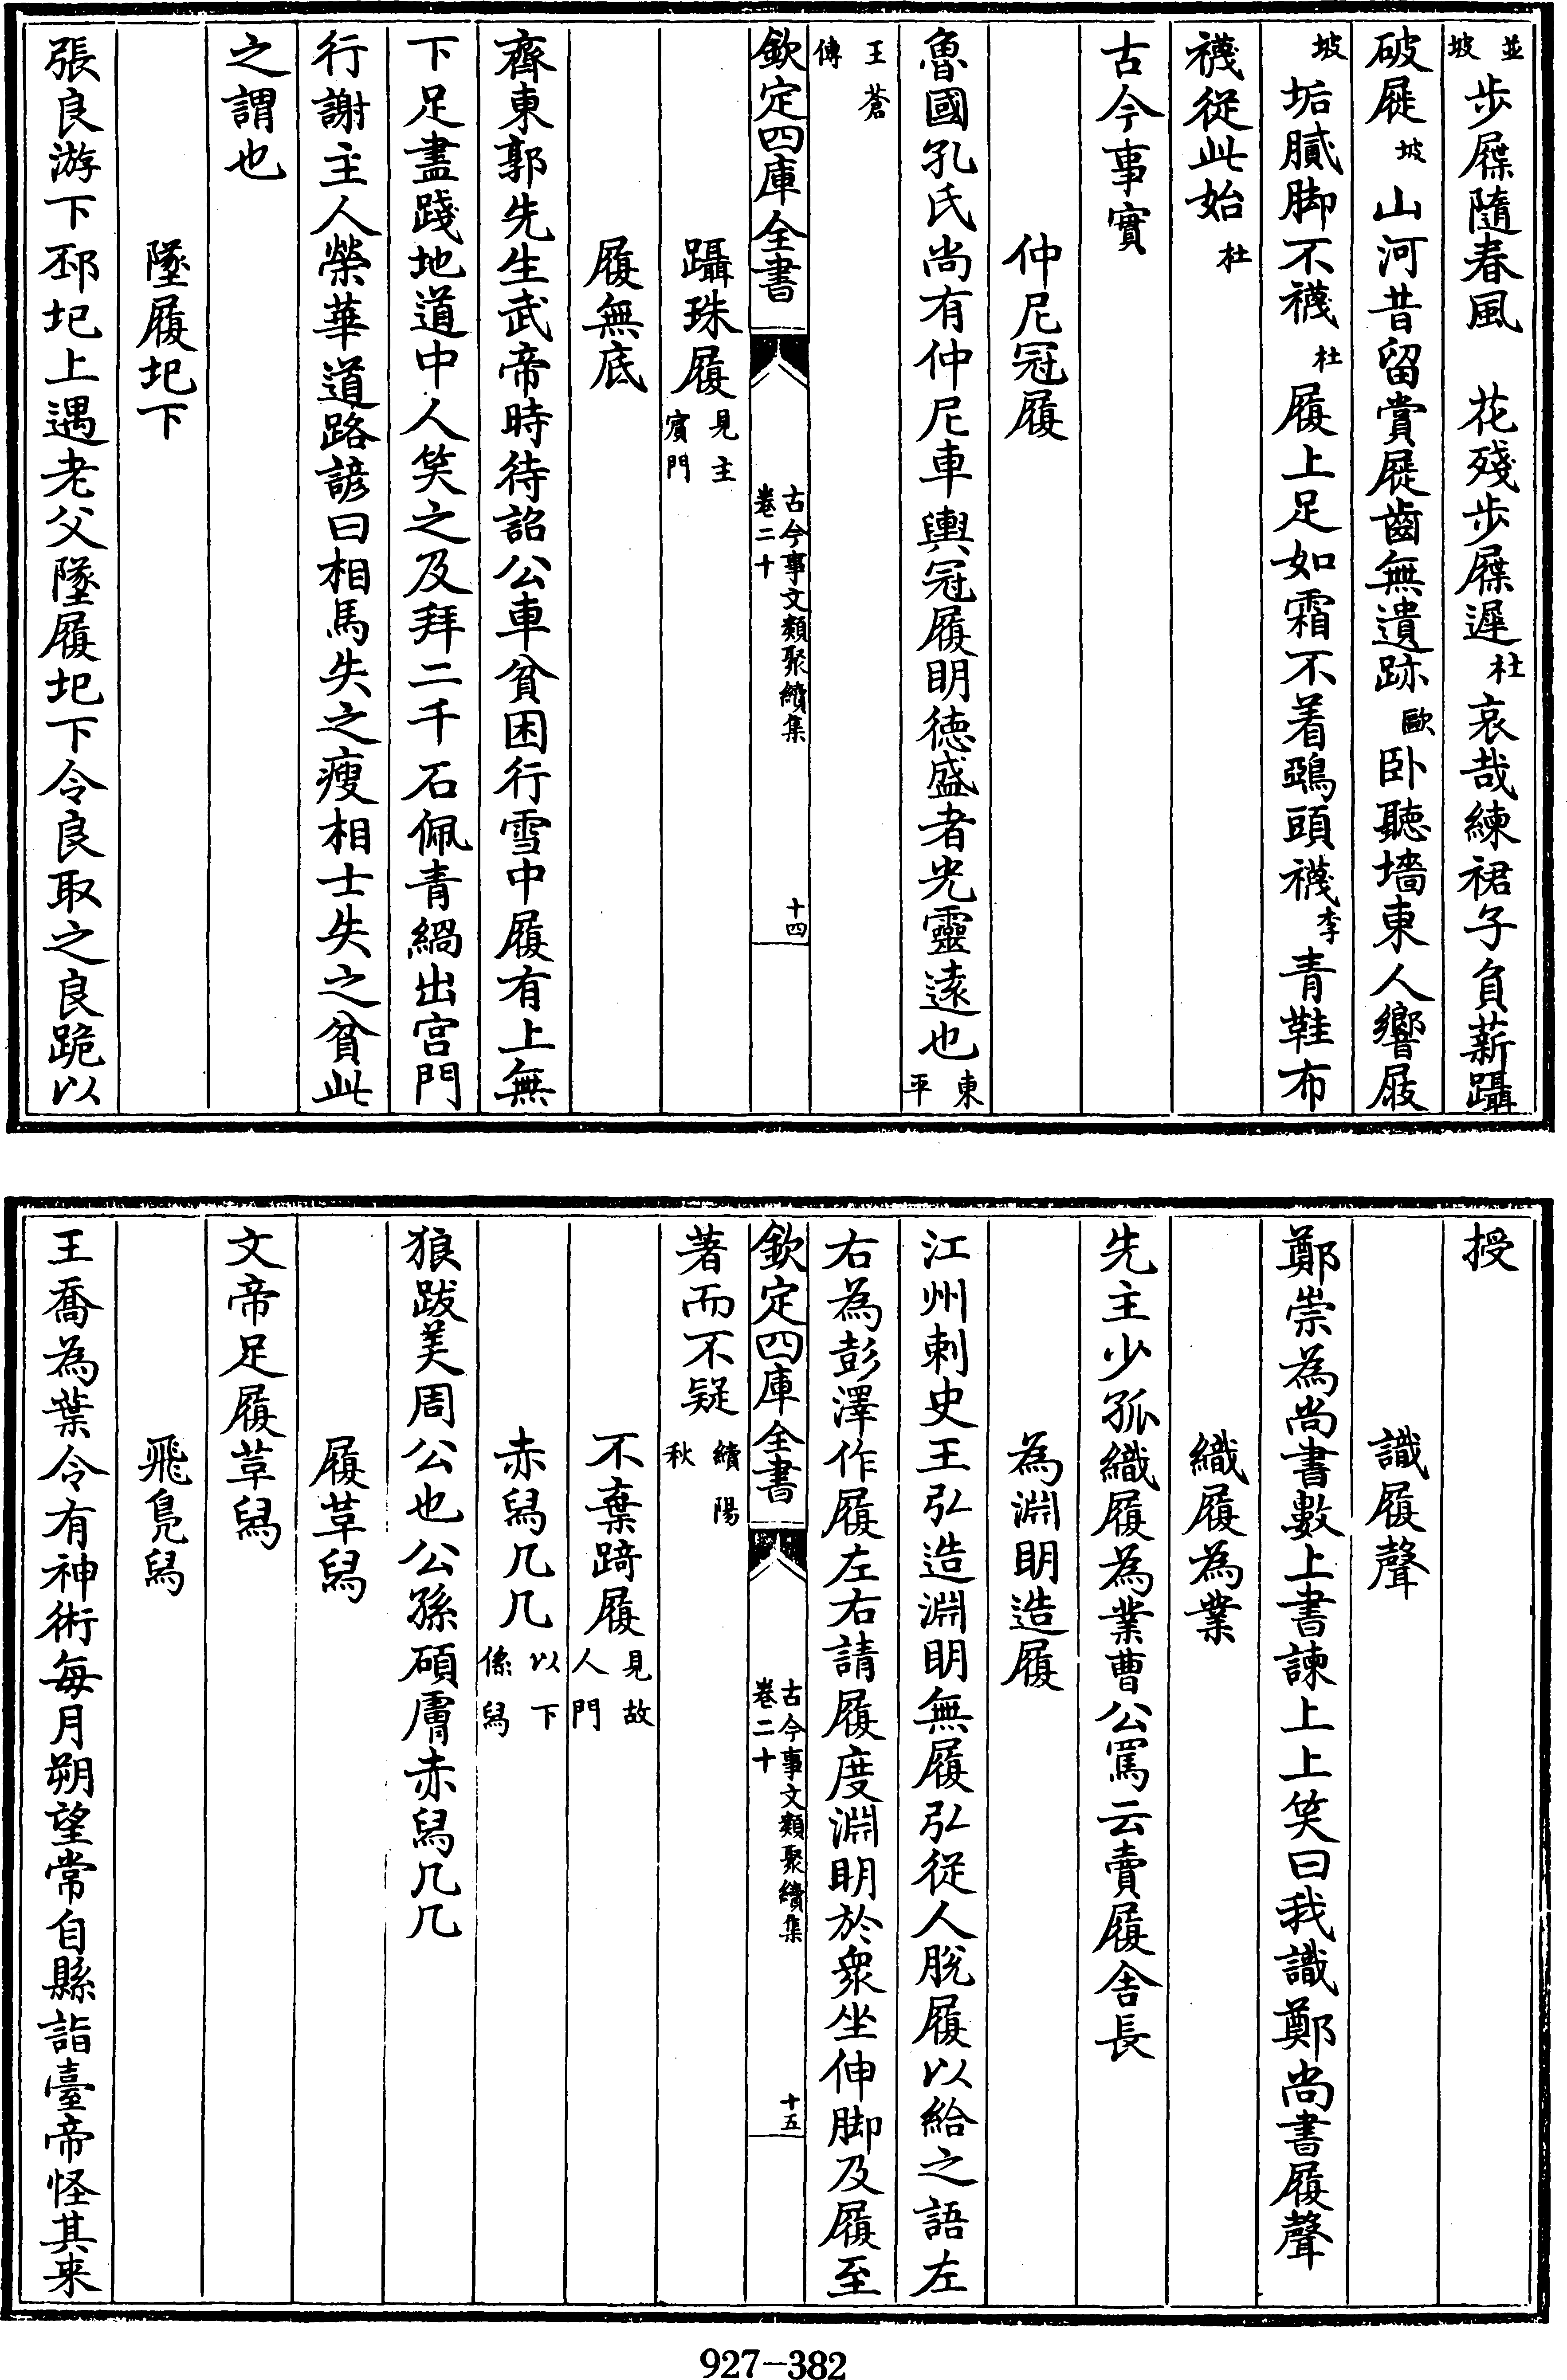 並坡步屧隨春風　花殘步屧遲杜哀哉練裙子負薪躡
破屣坡山河昔留賞屣齒無遺跡歐卧聽墻東人響屐
坡垢膩脚不襪杜履上足如霜不着鵶頭襪李青鞋布
襪從此始杜
古今事實
仲尼冠履
魯國孔氏尚有仲尼車輿冠履明德盛者光靈遠也東平
王蒼傳
欽定四庫全書　古今事文類聚續集卷二十　十四
躡珠履見主賓門
履無底
齊東郭先生武帝時待詔公車貧困行雪中履有上無
下足盡踐地道中人笑之及拜二千石佩青緺出宮門
行謝主人榮華道路諺曰相馬失之瘦相士失之貧此
之謂也
墜履圯下
張良游下邳圯上遇老父墜履圯下令良取之良跪以
授
識履聲
鄭崇為尚書數上書諫上上笑曰我識鄭尚書履聲
織履為業
先主少孤織履為業曹公罵云賣履舍長
為淵明造履
江州刺史王弘造淵明無履弘從人脫履以給之語左
右為彭澤作履左右請履度淵明於衆坐伸脚及履至
欽定四庫全書　古今事文類聚續集卷二十　十五
著而不疑續陽秋
不棄踦履見故人門
赤舄几几以下係舄
狼跋美周公也公孫碩膚赤舄几几
履草舄
文帝足履草舄
飛鳧舄
王喬為葉令有神術每月朔望常自縣詣臺帝怪其来
927-382